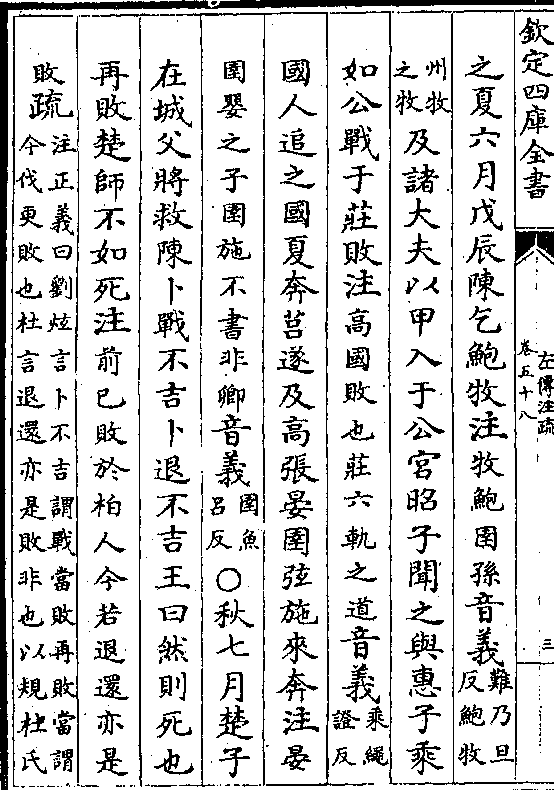 欽定四庫全書
左傳注疏
卷五十八
三
之夏六月戊辰陳乞鮑牧注牧鮑圉孫音義難乃旦反鮑牧
州牧之牧及諸大夫以甲入于公宮昭子聞之與惠子乘
如公戰于莊敗注高國敗也莊六軌之道音義乘繩證反
國人追之國夏奔莒遂及高張晏圉弦施來奔注晏
圉嬰之子圉施不書非卿音義圉魚呂反○秋七月楚子
在城父將救陳卜戰不吉卜退不吉王曰然則死也
再敗楚師不如死注前已敗於柏人今若退還亦是
敗疏注正義曰劉炫言卜不吉謂戰當敗再敗當謂
今伐更敗也杜言退還亦是敗非也以規杜氏